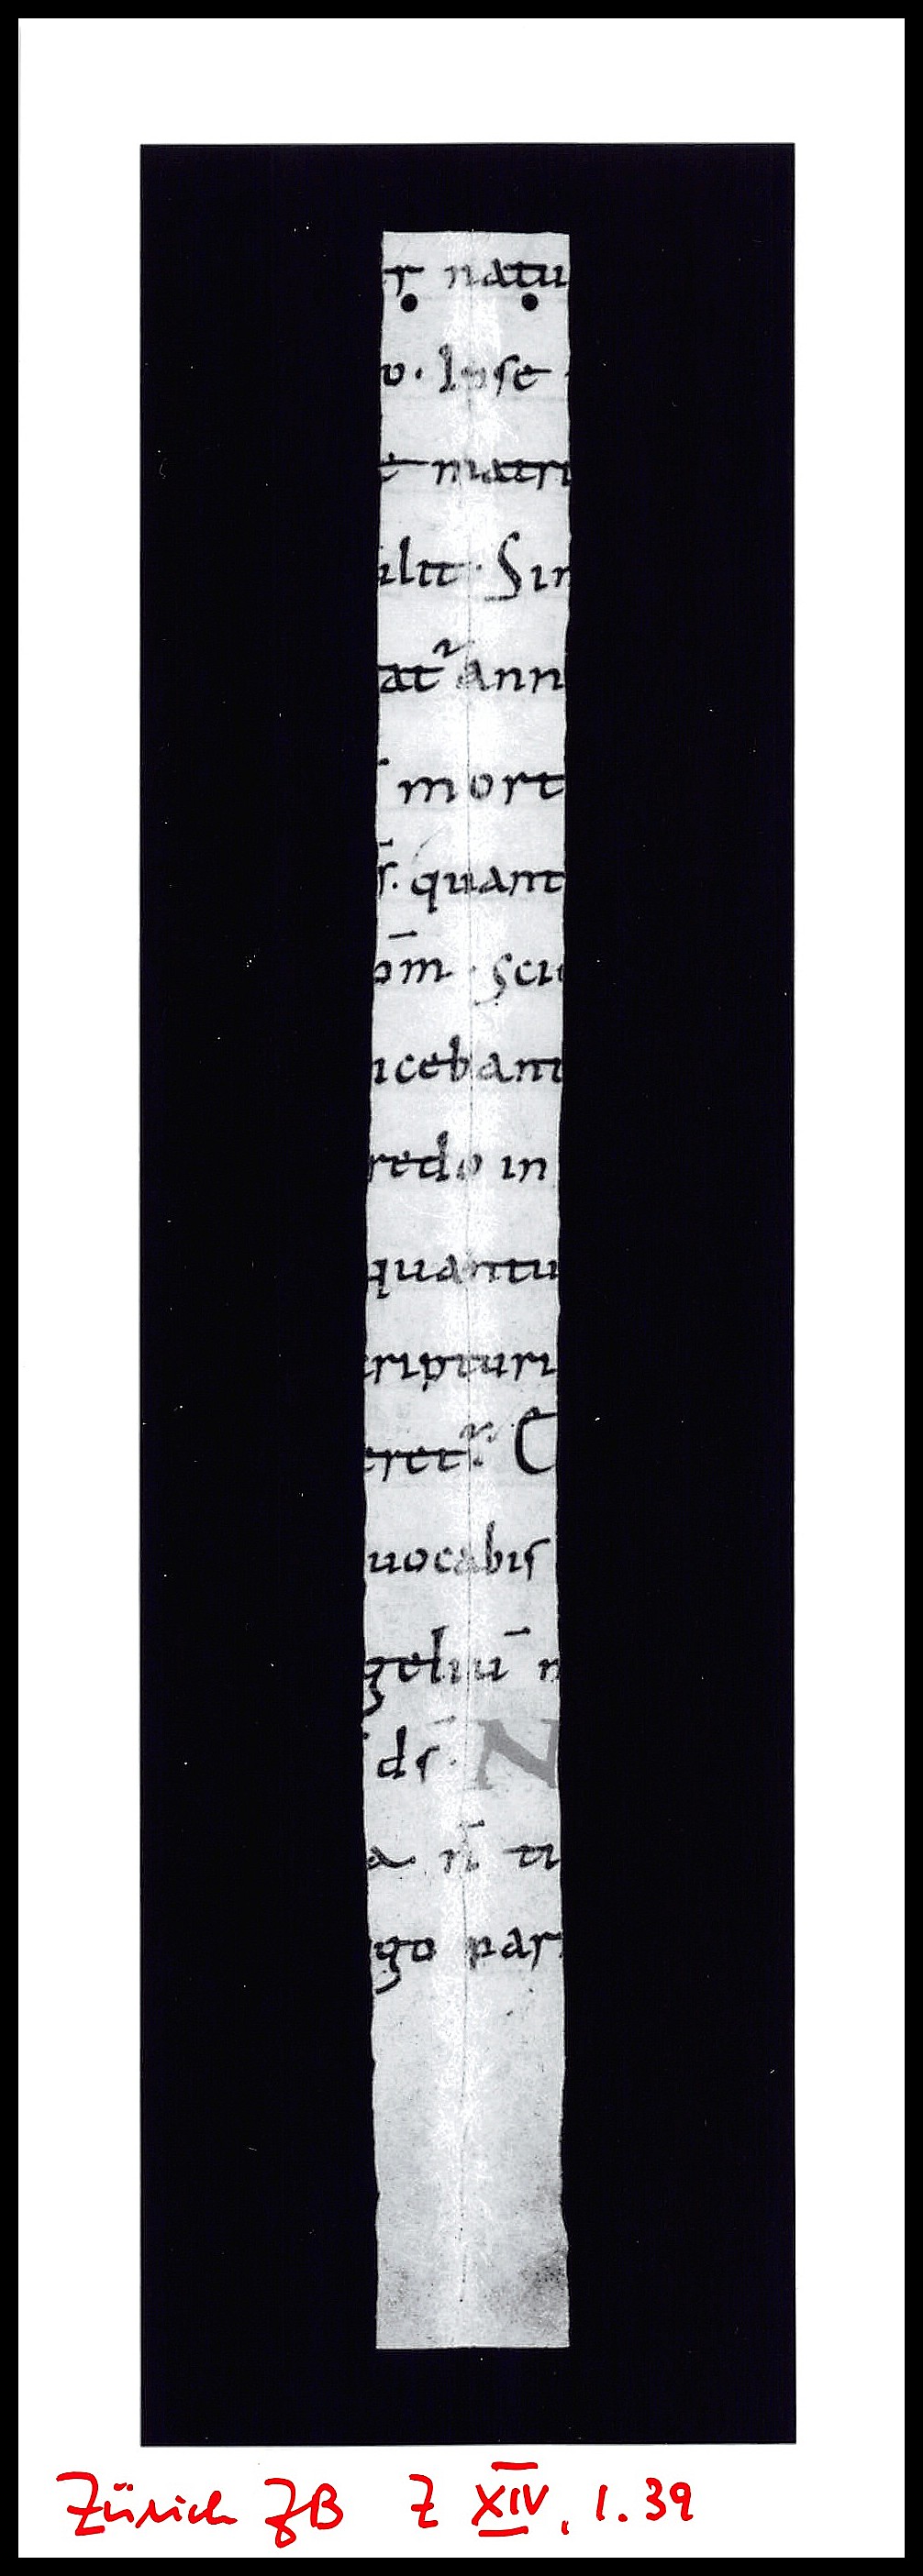 r natu
o. Ipse
t matri
ilit. Sin
atᷣ ann
mort
r̄. quant
om̄. scio
icebant
redo in
quantu
cripturi
eretᷣ. C
uocabis
geliū n
ds̄. N
a n̄ ti
go par
Zürich ZB Z XIV, 1.39